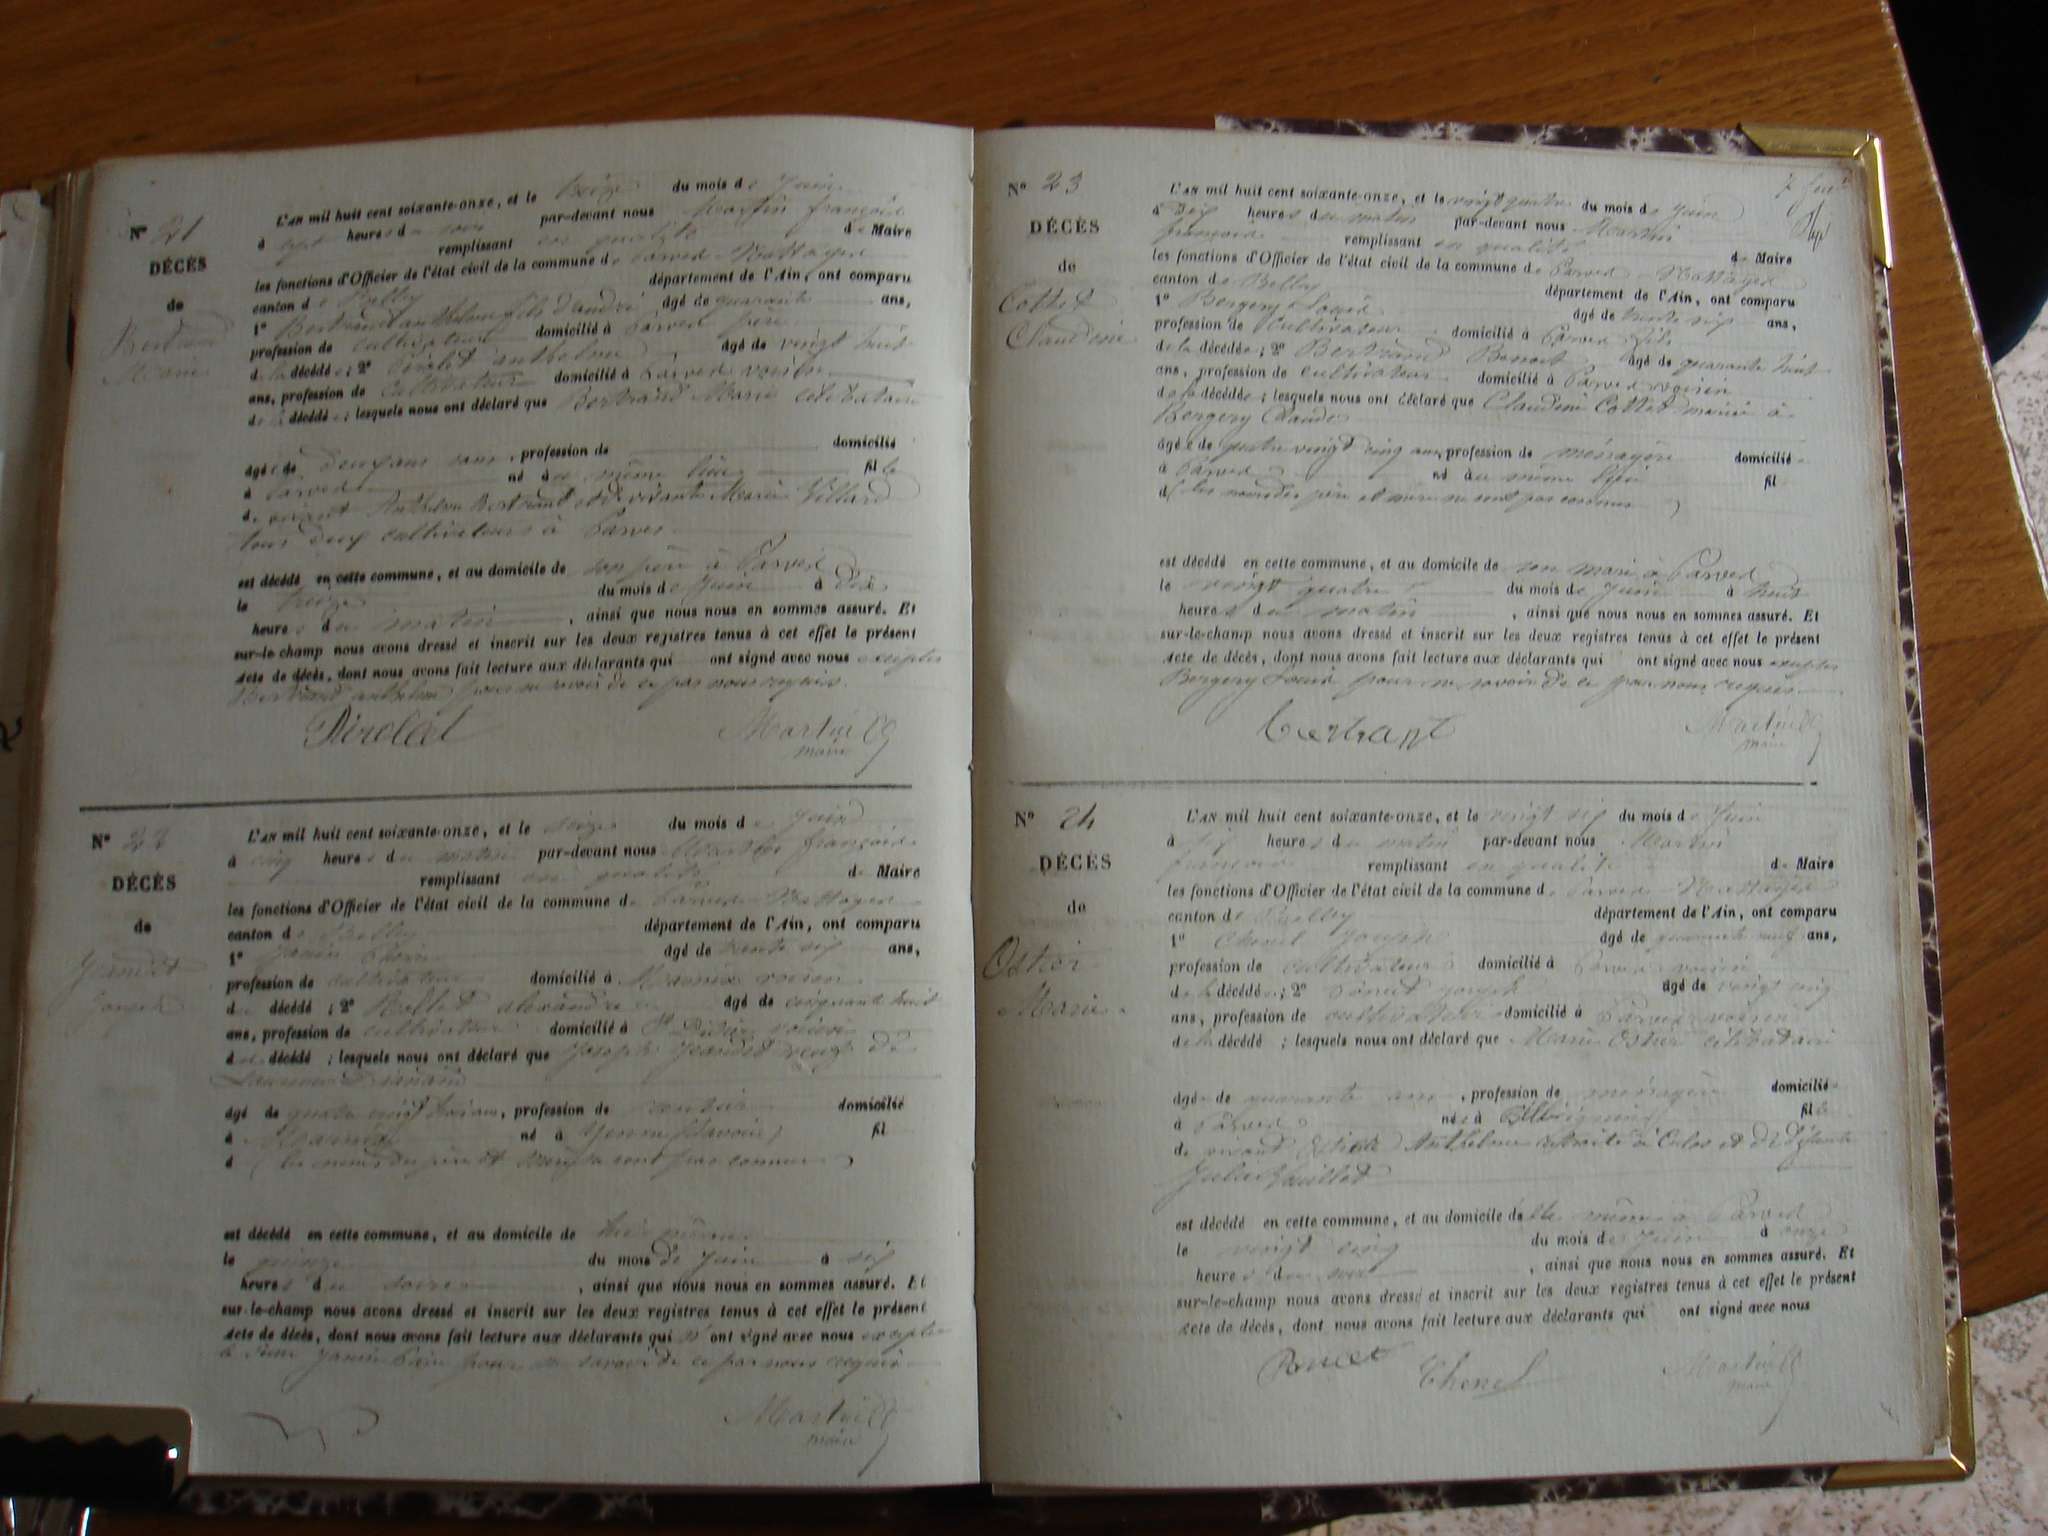 N° 21
DÉCÈS
de
Bertrand
Marie
L'AN mil huit cent soixante-onze, et le treize du mois de Juin
à sept heures du soir par-devant nous Martin françois
remplissant en qualité de Maire
les fonctions d'Officier de l'état civil de la commune de Parves Nattages
canton de Belley département de l'Ain, ont comparu
1° Bertrand anthelme fils d'andré âgé de quarante ans,
profession de cultivateur domicilié à Parves père
de la décédée; 2° anthelme âgé de vingt huit
ans, profession de cultivateur domicilié à Parves voisin
de la décédée; lesquels nous ont déclaré que Bertrand Marie célibataire
âgée de deux ans sans, profession de domicilié
à Parves né du même lieu fille
de vivant Anthelme Bertrand et de vivante Marie Villard
tous deux cultivateurs à Parves
est décédé en cette commune, et au domicile de son père à Parves
le treize du mois de Juin à dix
heures du matin, ainsi que nous nous en sommes assuré. Et
sur-le-champ nous avons dressé et inscrit sur les deux registres tenus à cet effet le présent
acte de décès, dont nous avons fait lecture aux déclarants qui ont signé avec nous excepté
Bertrand anthelme pour ne savoir de ce par nous requis.
Martin
maire
N° 22
DÉCÈS
de
Joseph
L'AN mil huit cent soixante-onze, et le seize du mois de Juin
à cinq heures du matin par-devant nous Martin françois
remplissant en qualité de Maire
les fonctions d'Officier de l'état civil de la commune de Parves Nattages
canton de Belley département de l'Ain, ont comparu
1° Janin âgé de trente six ans,
profession de cultivateur domicilié à voisin
du décédé; 2° alexandre âgé de cinquante huit
ans, profession de cultivateur domicilié à St Didier voisin
du décédé; lesquels nous ont déclaré que Joseph veuf de
âgé de quatre vingt ans, profession de rentier domicilié
à né à Yenne (Savoie) fil
d (les noms des père et mère ne sont pas connus)
est décédé en cette commune, et au domicile de lui même
le quinze du mois de Juin à six
heures du soir, ainsi que nous nous en sommes assuré. Et
sur-le-champ nous avons dressé et inscrit sur les deux registres tenus à cet effet le présent
acte de décès, dont nous avons fait lecture aux déclarants qui n'ont signé avec nous excepté
le Janin pour ne savoir de ce par nous requis
Martin
maire
N° 23
DÉCÈS
de
Cottet
Claudine
L'AN mil huit cent soixante-onze, et le vingt quatre du mois de Juin
à dix heures du matin par-devant nous Martin
françois remplissant en qualité de Maire
les fonctions d'Officier de l'état civil de la commune de Parves Nattages
canton de Belley département de l'Ain, ont comparu
1° Bergery Louis âgé de trente six ans,
profession de cultivateur domicilié à Parves fils
de la décédée; 2° Bertrand Benoit âgé de quarante huit
ans, profession de cultivateur domicilié à Parves voisin
de la décédée; lesquels nous ont déclaré que Claudine Cottet mariée à
Bergery Claude
âgée de quatre vingt cinq ans, profession de ménagère domicilié
à Parves né au même lieu fil
d (les noms des père et mère ne sont pas connus)
est décédé en cette commune, et au domicile de son mari à Parves
le vingt quatre du mois de Juin à huit
heures du matin, ainsi que nous nous en sommes assuré. Et
sur-le-champ nous avons dressé et inscrit sur les deux registres tenus à cet effet le présent
acte de décès, dont nous avons fait lecture aux déclarants qui ont signé avec nous excepté
Bergery Louis pour ne savoir de ce par nous requis
Martin
maire
N° 24
DÉCÈS
de
Ostier
Marie
L'AN mil huit cent soixante-onze, et le vingt six du mois de Juin
à six heures du matin par-devant nous Martin
françois remplissant en qualité de Maire
les fonctions d'Officier de l'état civil de la commune de Parves Nattages
canton de Belley département de l'Ain, ont comparu
1° Chenel Joseph âgé de quarante neuf ans,
profession de cultivateur domicilié à Parves voisin
de la décédée; 2° Joseph âgé de vingt cinq
ans, profession de cultivateur domicilié à Parves voisin
de la décédé; lesquels nous ont déclaré que Marie Ostier célibataire
âgée de quarante ans, profession de ménagère domicilié
à Parves née à fille
de vivant Ostier Anthelme retraité à Culoz et de défunte
Julie
est décédé en cette commune, et au domicile d'elle même à Parves
le vingt cinq du mois de Juin à onze
heures du soir, ainsi que nous nous en sommes assuré. Et
sur-le-champ nous avons dressé et inscrit sur les deux registres tenus à cet effet le présent
acte de décès, dont nous avons fait lecture aux déclarants qui ont signé avec nous
Chenel
Martin
maire